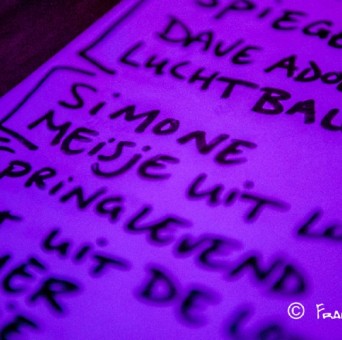 SPIEGE
DAVE ADO
LUCHTBAL
SiMONE
MEISJE UiT LU
SPRINGLEVEND
UiT DE LO
© FRA